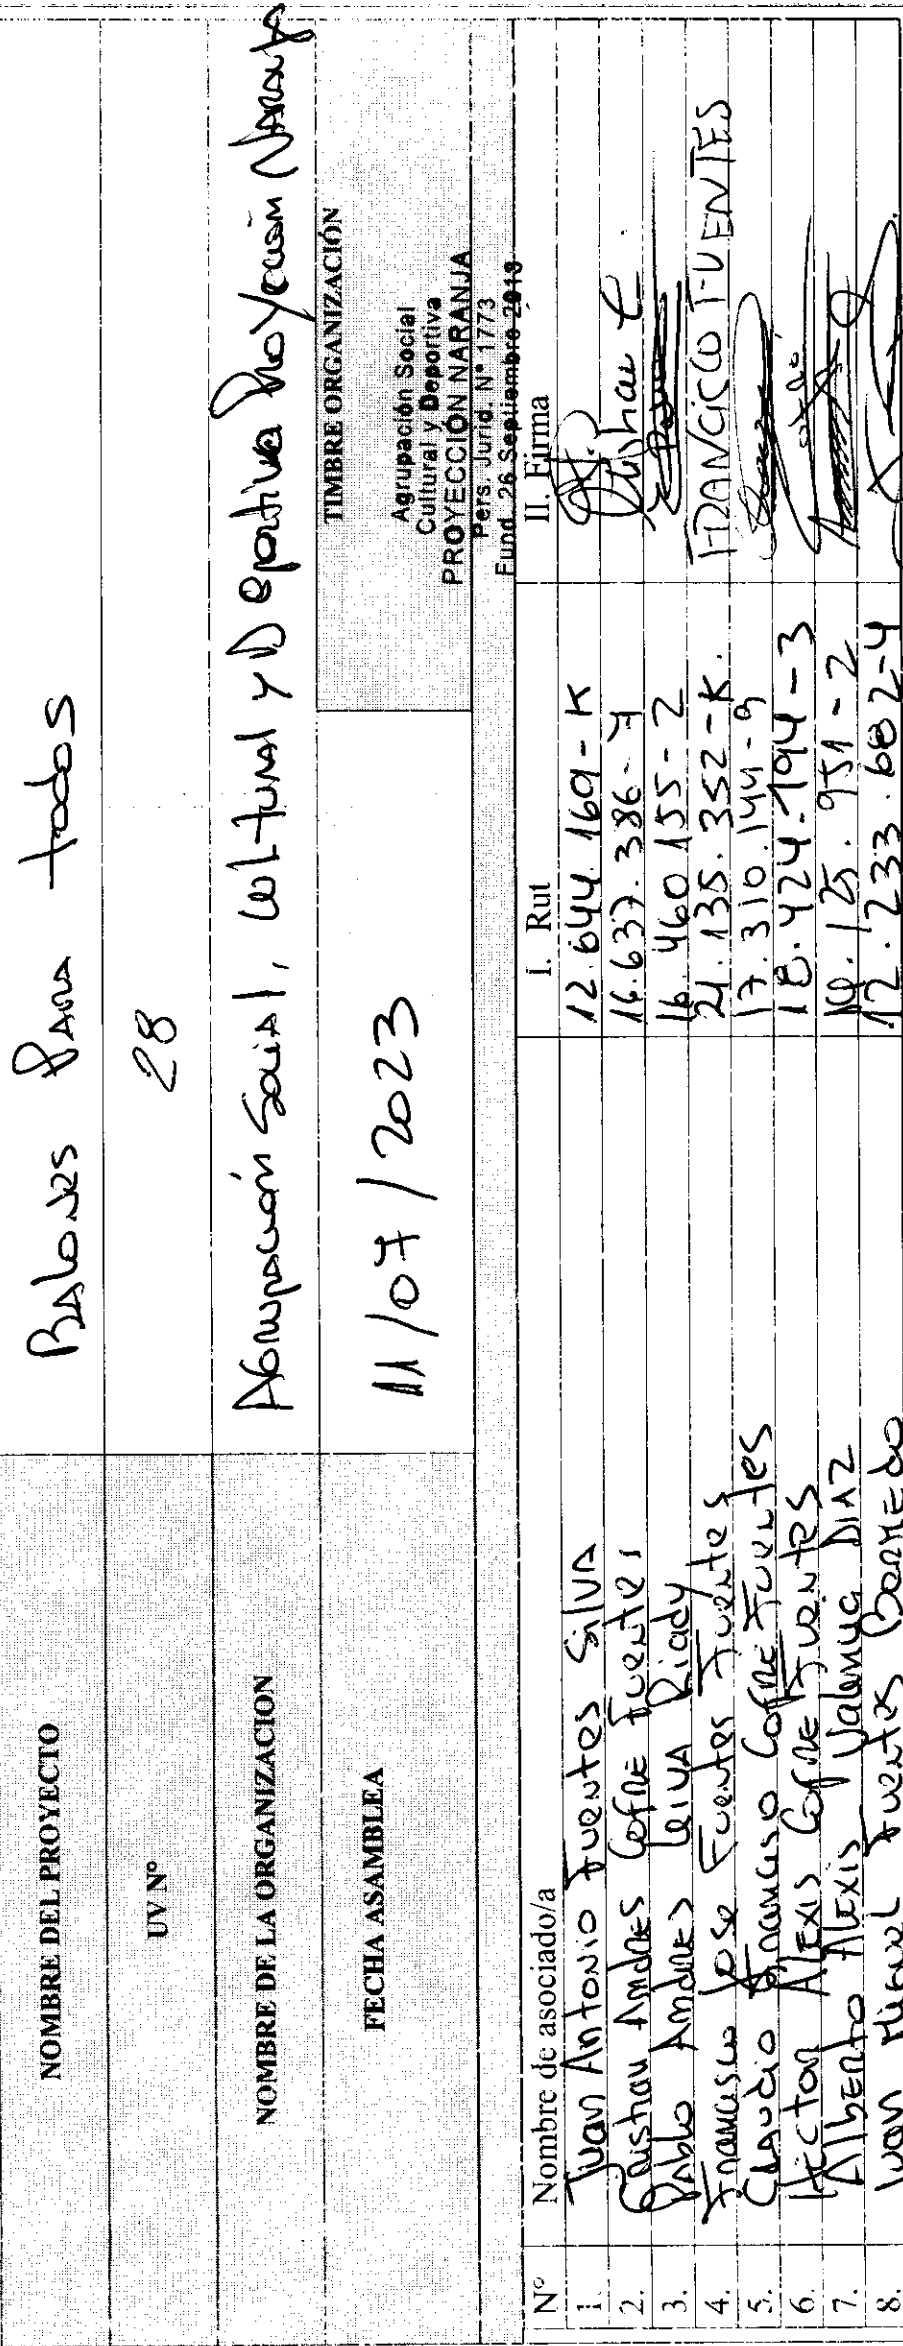 NOMBRE DEL PROYECTO Balones Para todos
UV Nº 28
NOMBRE DE LA ORGANIZACION Agrupación Social, Cultural y Deportiva Proyección Naranja
FECHA ASAMBLEA 11/07/2023
TIMBRE ORGANIZACIÓN
Agrupación Social
Cultural y Deportiva
PROYECCIÓN NARANJA
Pers. Jurid. N° 1773
Fund. 26 Septiembre
Nº Nombre de asociado/a I. Rut II. Firma
1. Juan Antonio Fuentes Silva 12.644.169-K
2. Cristian Andres Cofre Fuentes 16.637.386-7
3. Pablo Andres Leiva Riady 16.460.155-2
4. Francisco Jose Fuentes Fuentes 21.135.352-K. FRANCISCO FUENTES
5. Claudio Francisco Cofre Fuentes 17.310.144-9
6. Hector Alexis Cofre Fuentes 18.424.194-3
7. Alberto Alexis Valencia Diaz 125.951-2
8. Juan Miguel Fuentes Bermedo 12.233.682-4